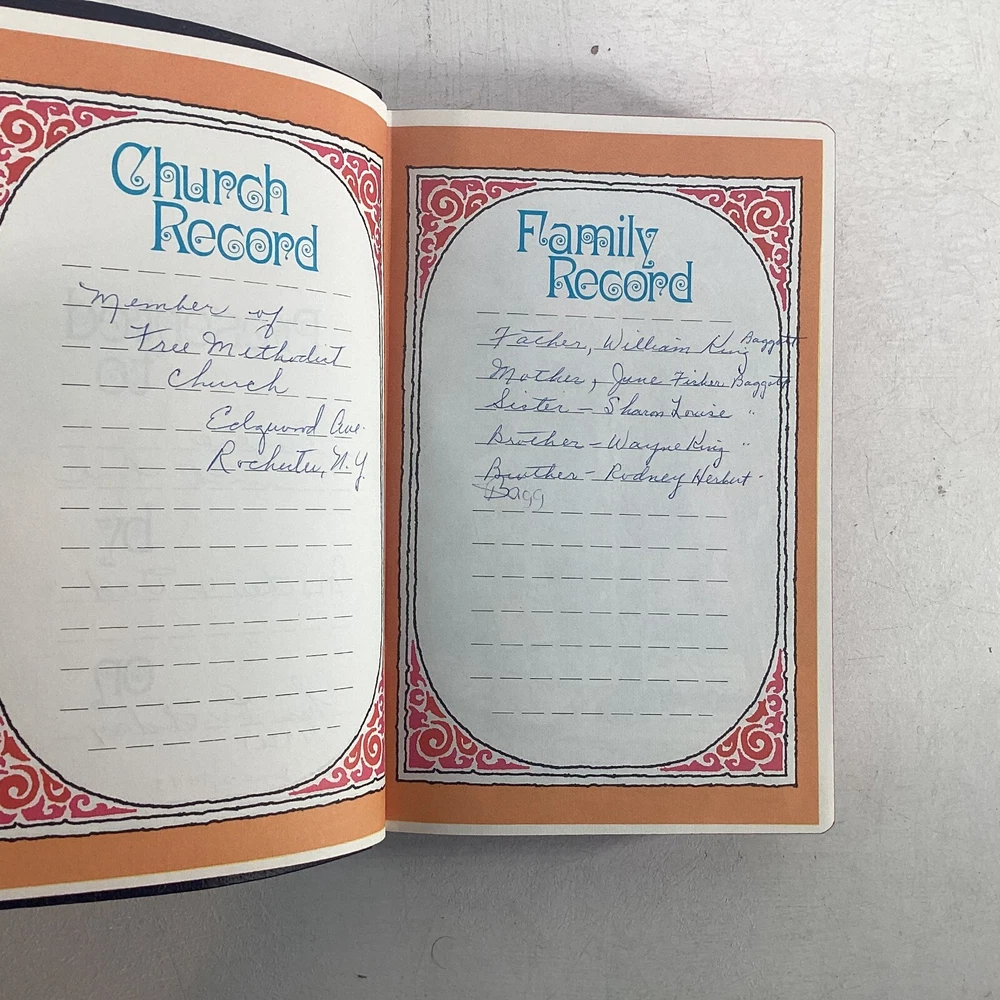 Church
Record
Member of
Free Methodist
Church
Edgwood Ave.
Rochester, N.Y.
Family
Record
Father, William King Baggott
Mother, June Fisher Baggott
Sister - Sharon Louise "
Brother - Wayne King "
Brother - Rodney Herbert -
Bagg